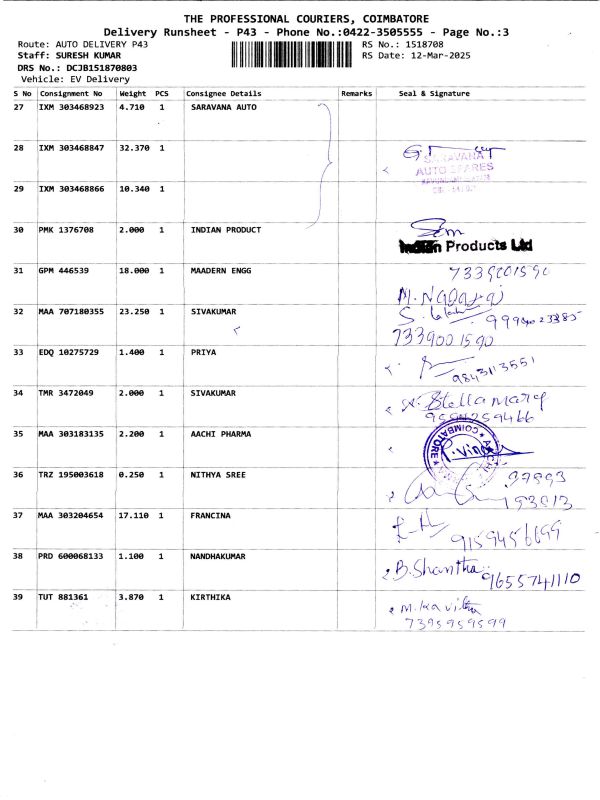 THE PROFESSIONAL COURIERS, COIMBATORE
Delivery Runsheet - P43 - Phone No.:0422-3505555 - Page No.:3
Route: AUTO DELIVERY P43 RS No.: 1518708
Staff: SURESH KUMAR RS Date: 12-Mar-2025
DRS No.: DCJB151870803
Vehicle: EV Delivery
S No Consignment No Weight PCS Consignee Details Remarks Seal & Signature
27 IXM 303468923 4.710 1 SARAVANA AUTO
28 IXM 303468847 32.370 1
SARAVANA
AUTO SPARES
29 IXM 303468866 10.340 1
30 PMK 1376708 2.000 1 INDIAN PRODUCT
Indian Products Ltd
31 GPM 446539 18.000 1 MAADERN ENGG
M. Nagaraj
32 MAA 707180355 23.250 1 SIVAKUMAR
7339001590
33 EDQ 10275729 1.400 1 PRIYA
9843113551
34 TMR 3472049 2.000 1 SIVAKUMAR
Stella mary
35 MAA 303183135 2.200 1 AACHI PHARMA
AACHI
COIMBATORE
36 TRZ 195003618 0.250 1 NITHYA SREE
37 MAA 303204654 17.110 1 FRANCINA
9159456699
38 PRD 600068133 1.100 1 NANDHAKUMAR
B. Shantha
9655741110
39 TUT 881361 3.870 1 KIRTHIKA
M. Kavitha
7395959599